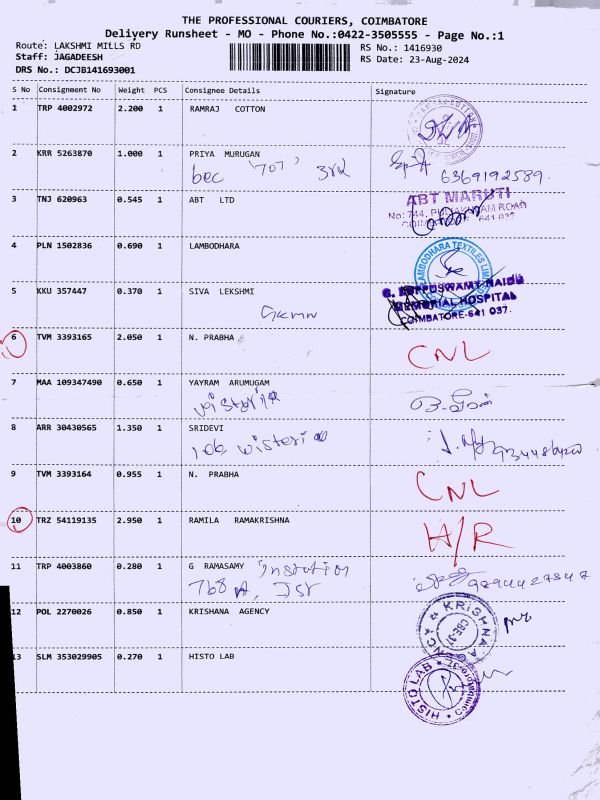 THE PROFESSIONAL COURIERS, COIMBATORE
Delivery Runsheet - MO - Phone No.:0422-3505555 - Page No.:1
Route: LAKSHMI MILLS RD
RS No.: 1416930
Staff: JAGADEESH
RS Date: 23-Aug-2024
DRS No.: DCJB141693001
S No Consignment No Weight PCS Consignee Details Signature
1 TRP 4002972 2.200 1 RAMRAJ COTTON
2 KRR 5263870 1.000 1 PRIYA MURUGAN
bec '707' 3rd 6369192589.
3 TNJ 620963 0.545 1 ABT LTD
ABT MARUTI
4 PLN 1502836 0.690 1 LAMBODHARA
LAMBODHARA TEXTILES LIM
5 KKU 357447 0.370 1 SIVA LEKSHMI
G. KUPPUSWAMY NAIDU
MEMORIAL HOSPITAL
COIMBATORE-641 037.
6 TVM 3393165 2.050 1 N. PRABHA
CNL
7 MAA 109347490 0.650 1 YAYRAM ARUMUGAM
8 ARR 30430565 1.350 1 SRIDEVI
9 TVM 3393164 0.955 1 N. PRABHA
CNL
10 TRZ 54119135 2.950 1 RAMILA RAMAKRISHNA
H/R
11 TRP 4003860 0.280 1 G RAMASAMY
12 POL 2270026 0.850 1 KRISHANA AGENCY
KRISHNA AGENCY CBE-37
13 SLM 353029905 0.270 1 HISTO LAB
HISTO LAB